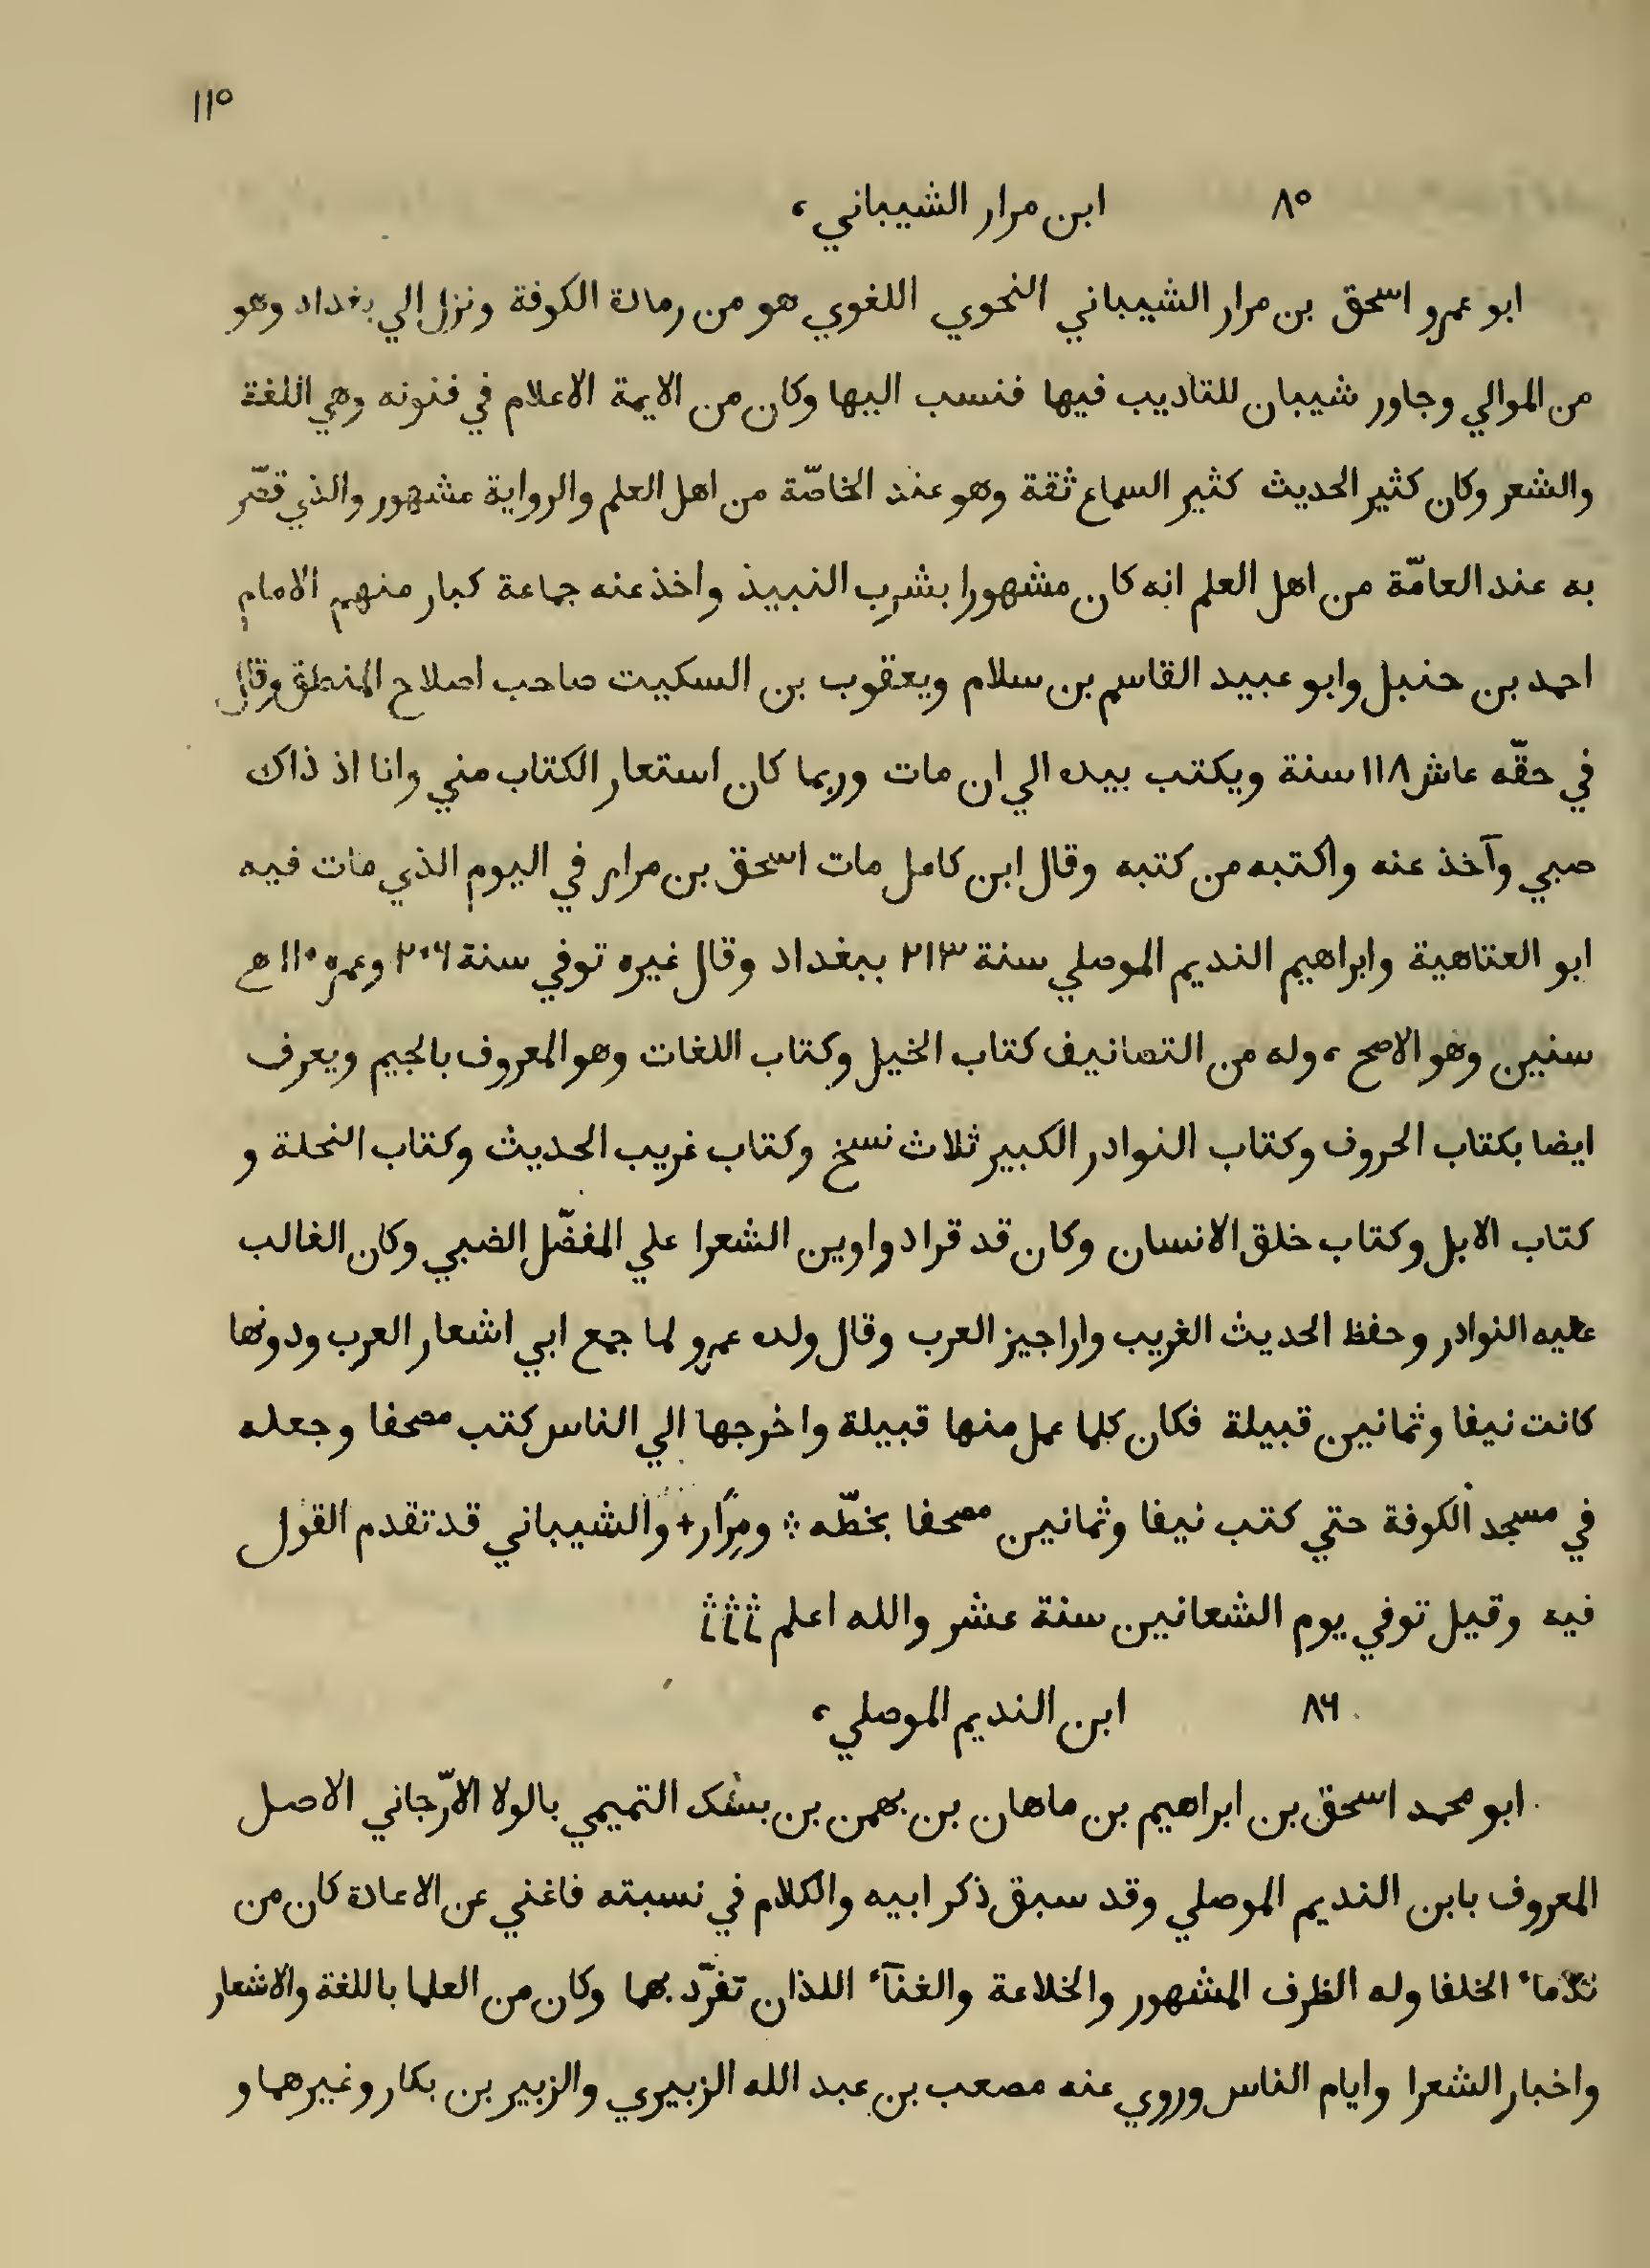 ١١٥
٨٥ ابن مرار الشيباني،
ابو عمرو اسحق بن مرار الشيباني النحوي اللغوي هو من رمادة الكوفة ونزل الي بغداد وهو
من الموالي وجاور شيبان للتاديب فيها فنسب اليها وكان من الايمة الاعلام في فنونه وهي اللغة
والشعر وكان كثير الحديث كثير السماع ثقة وهو عند الخاصّة من اهل العلم والرواية مشهور والذي قصّر
به عند العامّة من اهل العلم انه كان مشهورا بشرب النبيذ واخذ عنه جماعة كبار منهم الامام
احمد بن حنبل وابو عبيد القاسم بن سلام ويعقوب بن السكيت صاحب اصلاح المنطق وقال
في حقّه عاش ١١٨ سنة ويكتب بيده الي ان مات وربما كان استعار الكتاب مني وانا اذ ذاك
صبي وآخذ عنه واكتبه من كتبه وقال ابن كامل مات اسحق بن مرار في اليوم الذي مات فيه
ابو العتاهية وابراهيم النديم الموصلي سنة ٢١٣ ببغداد وقال غيره توفي سنة ٢٠٦ وعمره ١١٠
سنين وهو الاصح، وله من التصانيف كتاب الخيل وكتاب اللغات وهو المعروف بالجيم ويعرف
ايضا بكتاب الحروف وكتاب النوادر الكبير ثلاث نسخ وكتاب غريب الحديث وكتاب النحلة و
كتاب الابل وكتاب خلق الانسان وكان قد قرا دواوين الشعرا علي المفضّل الضبي وكان الغالب
عليه النوادر وحفظ الحديث الغريب واراجيز العرب وقال ولده عمرو لما جمع ابي اشعار العرب ودونها
كانت نيفا وثمانين قبيلة فكان كلما عمل منها قبيلة واخرجها الي الناس كتب مصحفا وجعله
في مسجد الكوفة حتي كتب نيفا وثمانين مصحفا بخطّه ومِرَار + والشيباني قد تقدم القول
فيه وقيل توفي يوم الشعانين سنة عشر والله اعلم
٨٦ ابن النديم الموصلي،
ابو محمد اسحق بن ابراهيم بن ماهان بن بهمن بن بسك التميمي بالولا الارّجاني الاصل
المعروف بابن النديم الموصلي وقد سبق ذكر ابيه والكلام في نسبته فاغني عن الاعادة كان من
ندماء الخلفا وله الظرف المشهور والخلاعة والغنآء اللذان تفرّد بهما وكان من العلما باللغة والاشعار
واخبار الشعرا وايام الناس وروي عنه مصعب بن عبد الله الزبيري والزبير بن بكار وغيرهما و